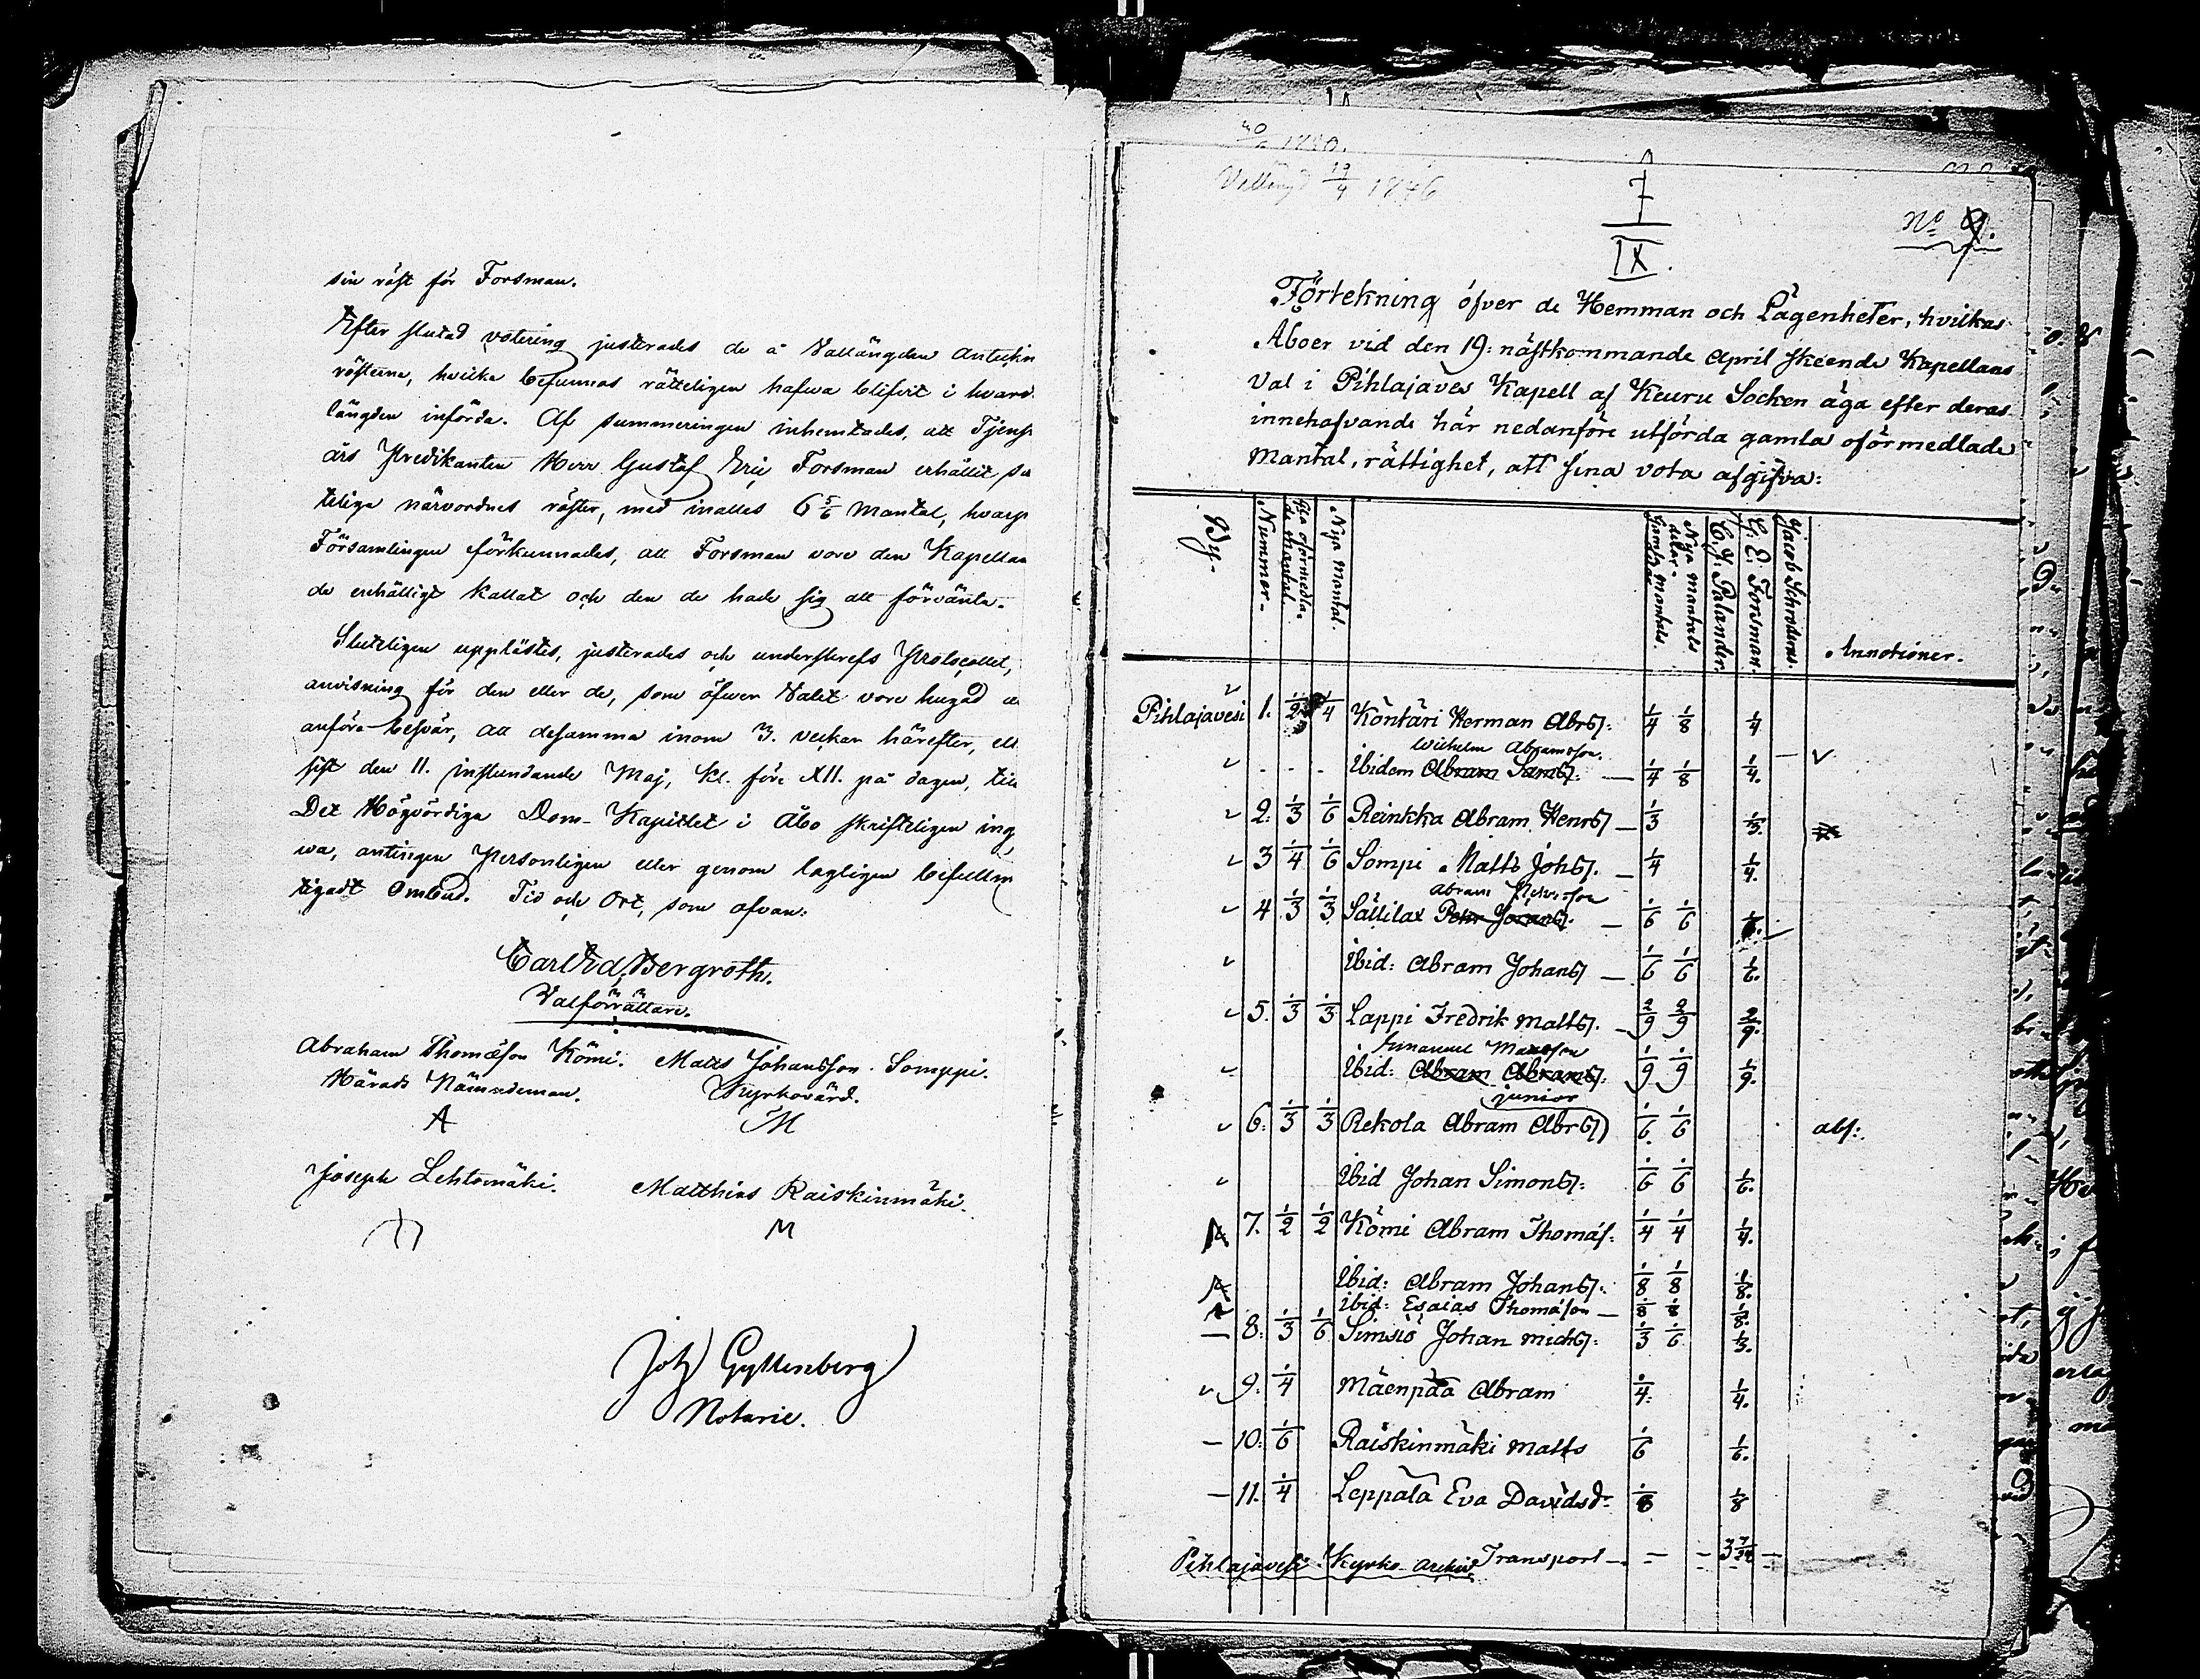 sin röst för Forsman.
Efter slutad votering justerades de å Vallängden anteckn
rösterna, hvilka befunnos rätteligen hafwa blifvit i hvard.
längden införda. Af summeringen inhemtades, att Tjenst
års Predikanten Herr Gustaf Eric Forsman erhållit sa
telige närvordnes röster, med inalles 6 5/6 Mantal, hvarp
Församlingen förkunnades, att Forsman vore den Kapellan
de enhälligt kallat och den de hade sig att förvänta.
Slutligen upplästes, justerades och underskrefs Protocollet,
anvisning för den eller de, som öfwer Valet vore hugad a
anföra besvär, att desamma inom 3. veckor härefter, ell
sist den 11. instundande Maj, kl. före XII. på dagen, till
Det Högvördige Dom-Kapitlet i Åbo skrifteligen ing
wa, antingen Personligen eller genom lagligen befullm
tigadt Ombud. Tid och Ort, som ofvan:
Carl Ed. Bergroth.
Valförrättare.
Abraham Thomæson Kömi. Matts Johansson Somppi.
Härads Nämndeman. Kyrkovärd.
A M
Joseph Lehtomäki. Matthias Raiskinmäki.
M
Joh Gyllenberg
Notarie.
1846
7
IX.
No 9.
Förtekning öfver de Hemman och Lägenheter, hvilkas
Åboer vid den 19: nästkommande April skeende Kapellans
Val i Pihlajaves Kapell af Keuru Socken äga efter deras
innehafvande här nedanföre utförda gamla oförmedlade
Mantal, rättighet, att sina vota afgifva:
By. Nummer. Gla oförmedlade Mantal. Nya Mantal Gamla Mantals delar. Nya Mantals delar. C. J. Palander. G. E. Forsman. Jacob Schroderus. Annotioner.
Pihlajavesi 1. 1/2 1/4 Köntäri Herman Abrss: 1/4 1/8 1/4
Wilhelm Abramsson.
Ibidem Abram Samss: 1/4 1/8 1/4.
2: 1/3 1/6 Reinkka Abram Henrss 1/3 1/3.
3 1/4 1/6 Sompi Matts Johss. 1/4 1/4.
Abram
4 1/3 1/3 Sällilax Pehr 1/6 1/6
Ibid: Abram Johanss 1/6 1/6 1/6.
5. 1/3 1/3 Lappi Fredrik Mattss. 2/9 2/9 2/9.
Emanuel Matsson
Ibid: Abram Abramss: 1/9 1/9 1/9.
junior
6: 1/3 1/3 Rekola Abram Abrss 1/6 1/6 abs:
Ibid Johan Simonss: 1/6 1/6 1/6.
7. 1/2 1/2 Kömi Abram Thomás: 1/4 1/4 1/4.
Ibid: Abram Johanss: 1/8 1/8 1/8.
ibid: Esaias Thomáson 1/8 1/8 1/8.
8: 1/3 1/6 Simsiö Johan Michss: 1/3 1/6 1/3.
9: 1/4 Mäenpää Abram 1/4: 1/4.
10: 1/6 Raiskinmäki Matts 1/6 1/6.
11. 1/4 Leppälä Eva Davidsd: 1/8 1/8
Pihlajavesi Kyrko archiv Transport 3 7/24